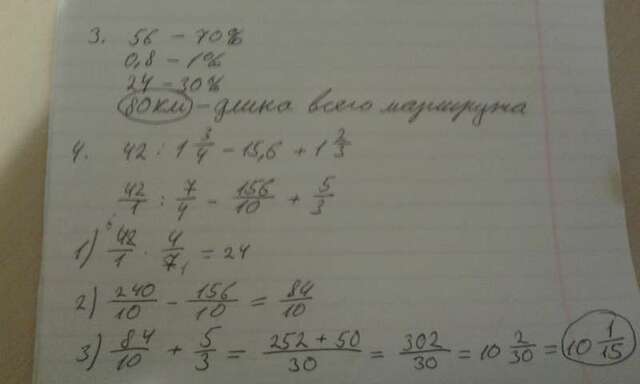 3. 56 - 70%
0,8 - 1%
24 - 30%
80км - длина всего маршрута
4. 42 : 1 3/4 - 15,6 + 1 2/3
42/1 : 7/4 - 156/10 + 5/3
1) 6 42/1 · 4/7 1 = 24
2) 240/10 - 156/10 = 84/10
3) 84/10 + 5/3 = 252 + 50/30 = 302/30 = 10 2/30 = 10 1/15